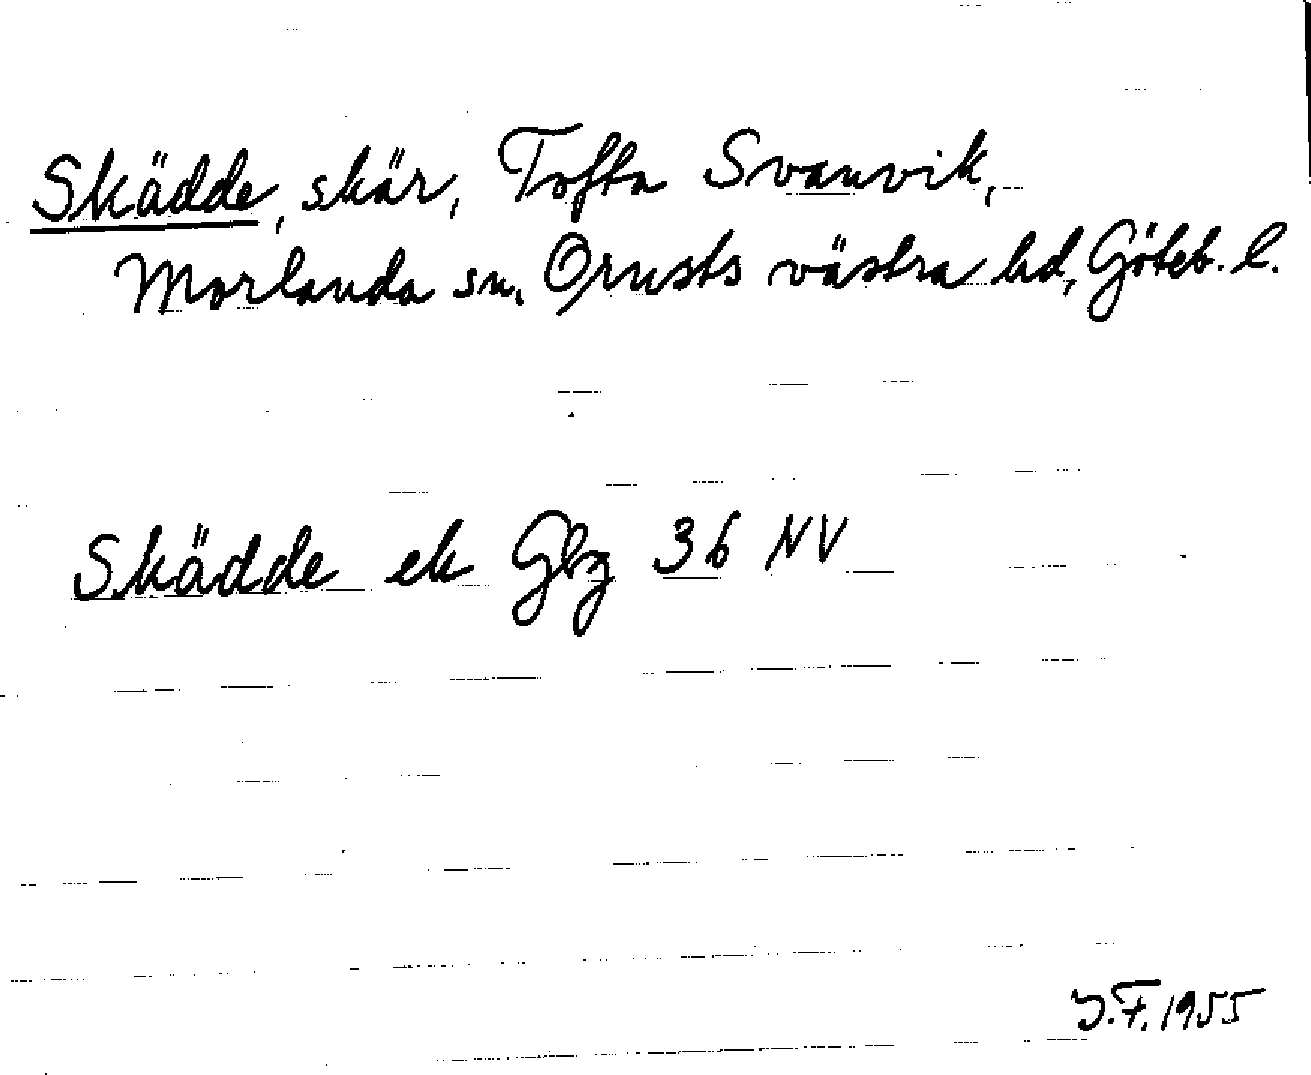 Skädde, skär, Tofta Svanvik,
Morlanda sn, Orusts västra hd, Göteb. l.
Skädde ek Gbg 36 NV
J.F. 1955